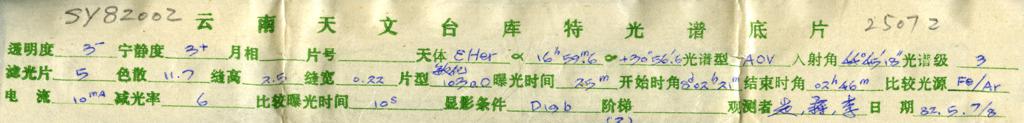 SY82002 云南天文台库特光谱底片 25072
透明度 3⁻ 宁静度 3⁺ 月相 片号 天体 EHer α 16ʰ59ᵐ.6 +30°56'.6 光谱型 A0V 入射角 光谱级 3
滤光片 5 色散 11.7 缝高 2.5 缝宽 0.22 片型 敏化 103aO 曝光时间 25ᵐ 开始时角 02ʰ21ᵐ 结束时角 02ʰ46ᵐ 比较光源 Fe/Ar
电流 10ᵐᴬ 减光率 6 比较曝光时间 10ˢ 显影条件 D19b 阶梯 观测者 李 日期 82.5.7/8
(2)